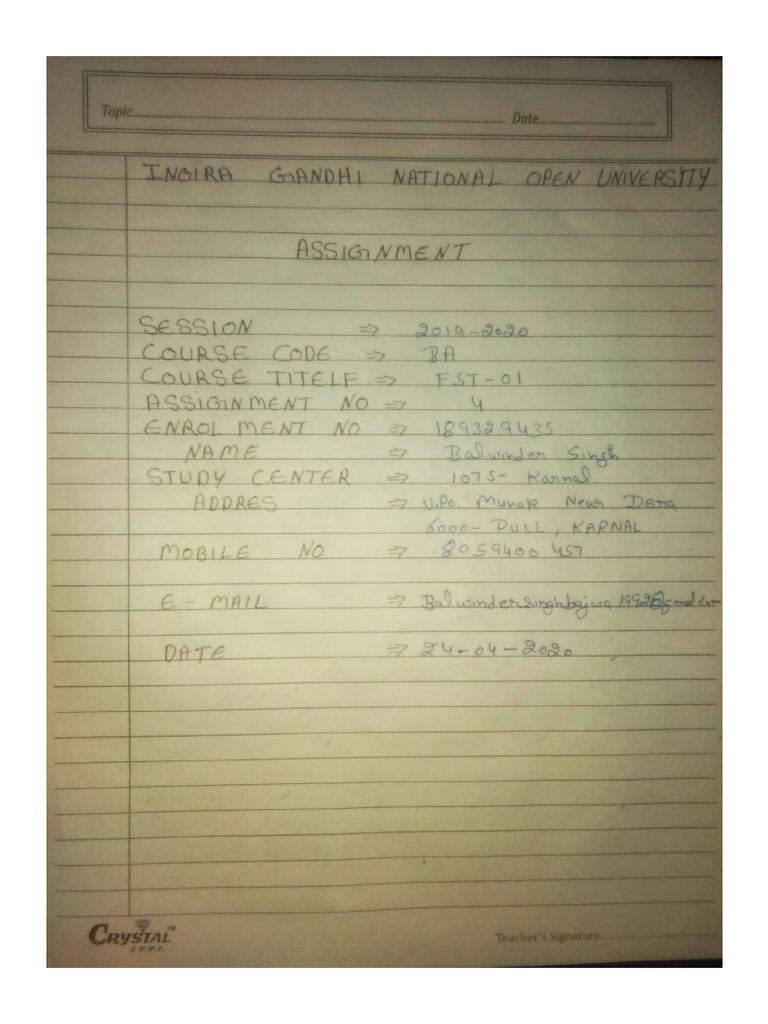 Topic Date
INDIRA GANDHI NATIONAL OPEN UNIVERSITY
ASSIGNMENT
SESSION ⇒ 2019-2020
COURSE CODE ⇒ BA
COURSE TITELE ⇒ FST-01
ASSIGNMENT NO ⇒ 4
ENROLMENT NO ⇒ 189329435
NAME ⇒ Balwinder Singh
STUDY CENTER ⇒ 1075- Karnal.
ADDRES ⇒ V.Po. Munak Near Dera
6000- PULL, KARNAL
MOBILE NO ⇒ .8059400 457
E-MAIL ⇒ Balwindersinghbajwa1992@gmail.com
DATE ⇒ 24-04-2020
CRYSTAL™ Teacher's Signature